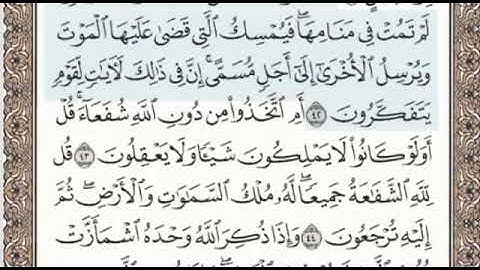 لَمْ تَمُتْ فِي مَنَامِهَا ۖ فَيُمْسِكُ الَّتِي قَضَىٰ عَلَيْهَا الْمَوْتَ
وَيُرْسِلُ الْأُخْرَىٰ إِلَىٰ أَجَلٍ مُّسَمًّى ۚ إِنَّ فِي ذَٰلِكَ لَآيَاتٍ لِّقَوْمٍ
يَتَفَكَّرُونَ ٤٢ أَمِ اتَّخَذُوا مِن دُونِ اللَّهِ شُفَعَاءَ ۚ قُلْ
أَوَلَوْ كَانُوا لَا يَمْلِكُونَ شَيْئًا وَلَا يَعْقِلُونَ ٤٣ قُل
لِّلَّهِ الشَّفَاعَةُ جَمِيعًا ۖ لَّهُ مُلْكُ السَّمَاوَاتِ وَالْأَرْضِ ۖ ثُمَّ
إِلَيْهِ تُرْجَعُونَ ٤٤ وَإِذَا ذُكِرَ اللَّهُ وَحْدَهُ اشْمَأَزَّتْ